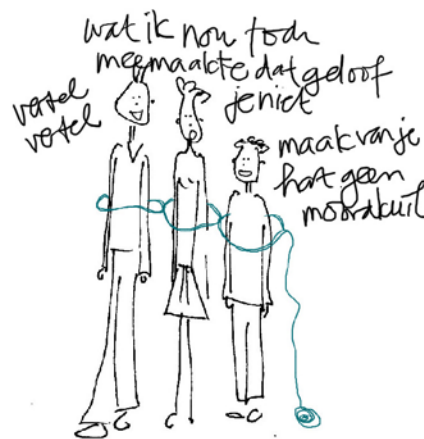 wat ik nou toch
meemaakte dat geloof
je niet
vertel
vertel
maak van je
hart geen
moordkuil